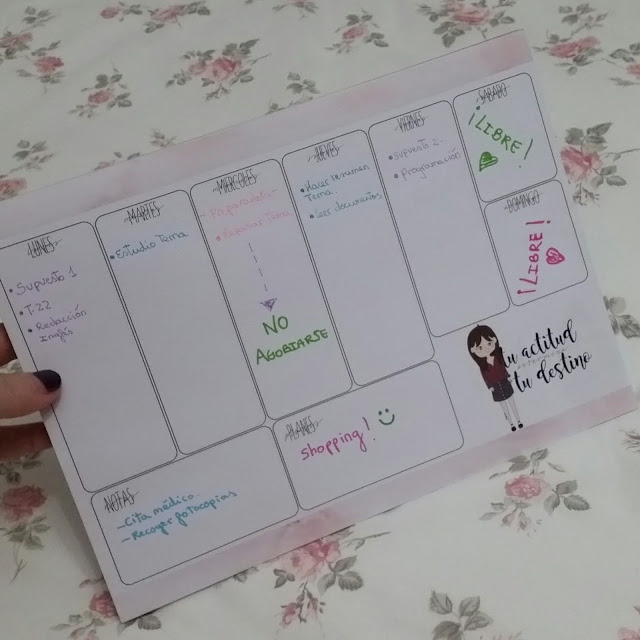 LUNES
• Supuesto 1
• T-22
• Redacción
Inglés
MARTES
• Estudio Tema
MIÉRCOLES
- Preparador -
• Repasar Tema
NO
AGOBIARSE
JUEVES
• Hacer resumen
Tema
• Leer documentos
VIERNES
• Supuesto 2
• Programación
SÁBADO
¡LIBRE!
DOMINGO
¡LIBRE!
NOTAS
- Cita médico
- Recoger fotocopias
PLANES
shopping!
tu actitud
tu destino